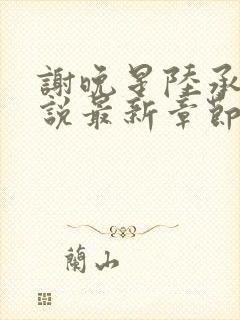 謝晚星陸承
說最新章節
蘭山